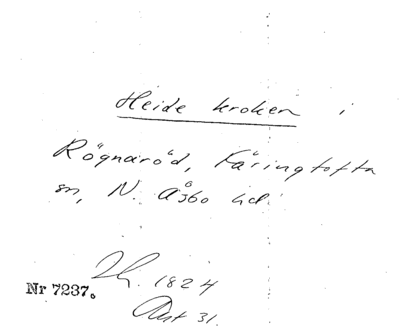 Heide kroken i
Rögnaröd, Färingtofta
sn, N. Åsbo hd.
1824
Nr 7237.
Akt 31.